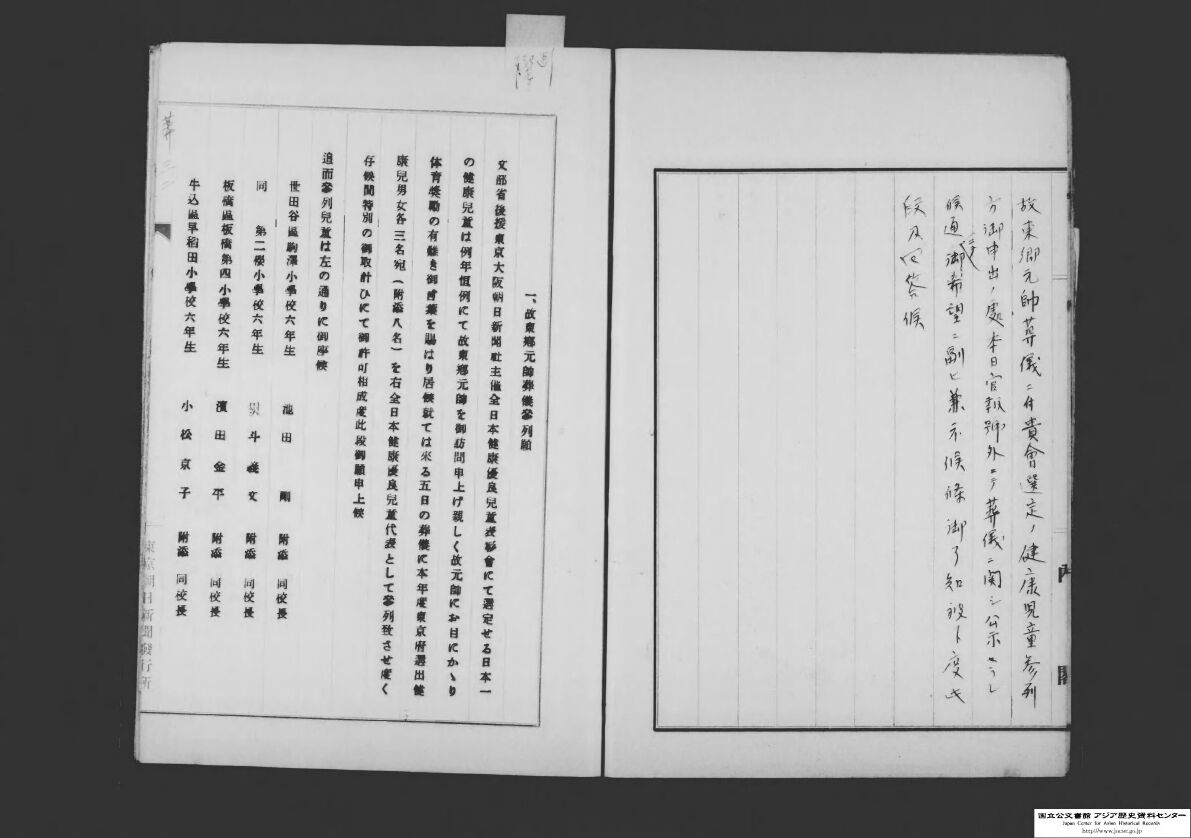 故東郷元帥葬儀ニ付貴會選定ノ健康児童参列
方御申出ノ處本日官報號外ニテ葬儀ニ関シ公示セラレ
候通御希望ニ副ヒ兼ネ候條御了知被下度此
段及回答候
一、故東郷元帥葬儀參列願
文部省後援東京大阪朝日新聞社主催全日本健康優良兒童表彰會にて選定せる日本一
の健康兒童は例年恒例にて故東郷元帥を御訪問申上げ親しく故元帥にお目にかゝり
体育奬勵の有難き御言葉を賜はり居候就ては来る五日の葬儀に本年度東京府選出健
康兒男女各三名宛(附添八名)を右全日本健康優良兒童代表として參列致させ度く
存候間特別の御取計ひにて御許可相成度此段御願申上候
追而參列兒童は左の通りに御座候
世田谷區駒澤小學校六年生 池田 剛 附添 同校長
同 第二櫻小學校六年生 熨斗義文 附添 同校長
板橋區板橋第四小學校六年生 濱田金平 附添 同校長
牛込區早稲田小學校六年生 小松京子 附添 同校長
東京朝日新聞發行所
葬 三二
国立公文書館 アジア歴史資料センター
Japan Center for Asian Historical Records
http://www.jacar.go.jp